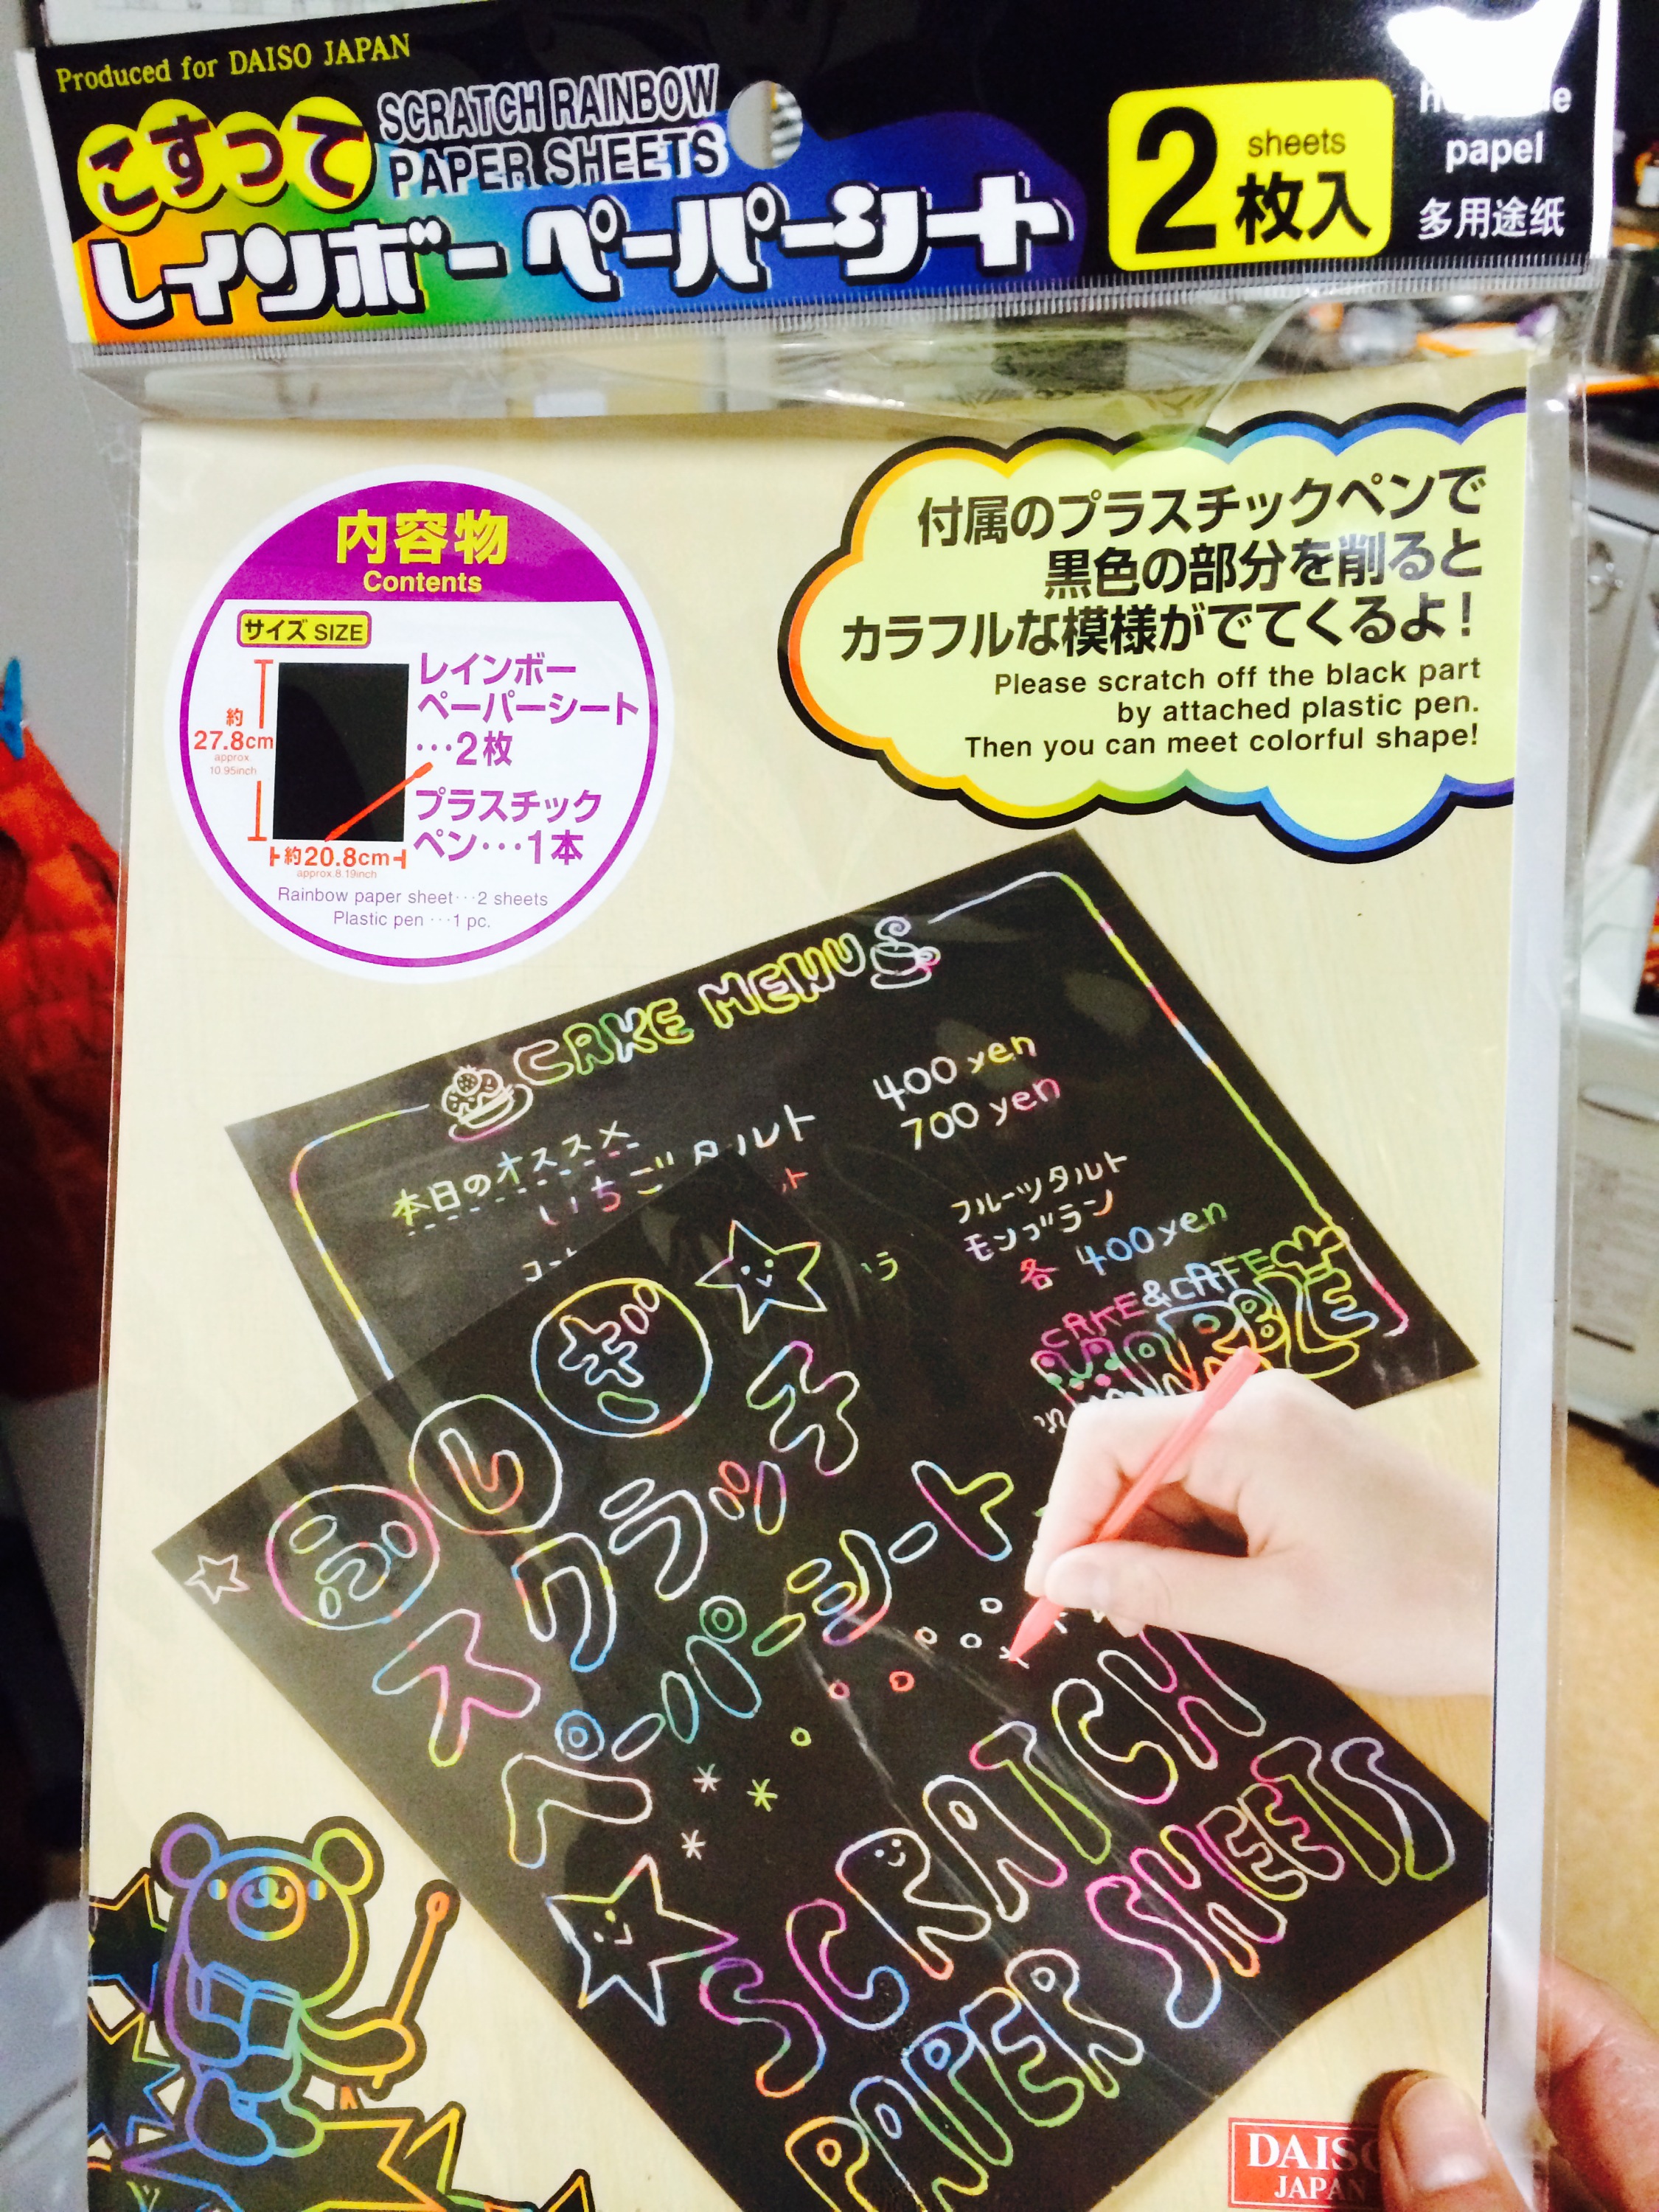 Produced for DAISO JAPAN
こすって
SCRATCH RAINBOW
PAPER SHEETS
レインボーペーパーシート
2 sheets
枚入
papel
多用途纸
内容物
Contents
サイズ SIZE
約
27.8cm
approx
10.95inch
約20.8cm
approx.8.19inch
レインボー
ペーパーシート
…2枚
プラスチック
ペン…1本
Rainbow paper sheet…2 sheets
Plastic pen …1 pc.
付属のプラスチックペンで
黒色の部分を削ると
カラフルな模様がでてくるよ!
Please scratch off the black part
by attached plastic pen.
Then you can meet colorful shape!
CAKE MENU
本日のオススメ
いちごタルト
400 yen
700 yen
フルーツタルト
モンブラン
各 400 yen
CAKE & CAFE
MARBLE
ふしぎ
スクラッチ
ペーパーシート
SCRATCH
PAPER SHEETS
DAISO
JAPAN